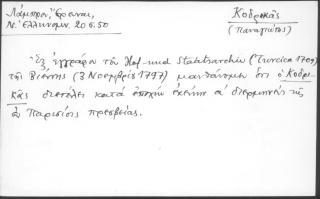 Λάμπρου, Ἔρευναι,
Ν. Ἑλληνομν. 20 σ. 50
Κοδρικᾶς
(Παναγιώτης)
Ἐξ ἐγγράφου τοῦ Hof-und Staatsarchiv (Turcica 1709)
τῆς Βιέννης (3 Νοεμβρίου 1797) μανθάνομεν ὅτι ὁ Κοδρι-
κᾶς διετέλει κατὰ ἐποχὴν ἐκείνην α' διερμηνεὺς τῆς
ἐν Παρισίοις πρεσβείας.